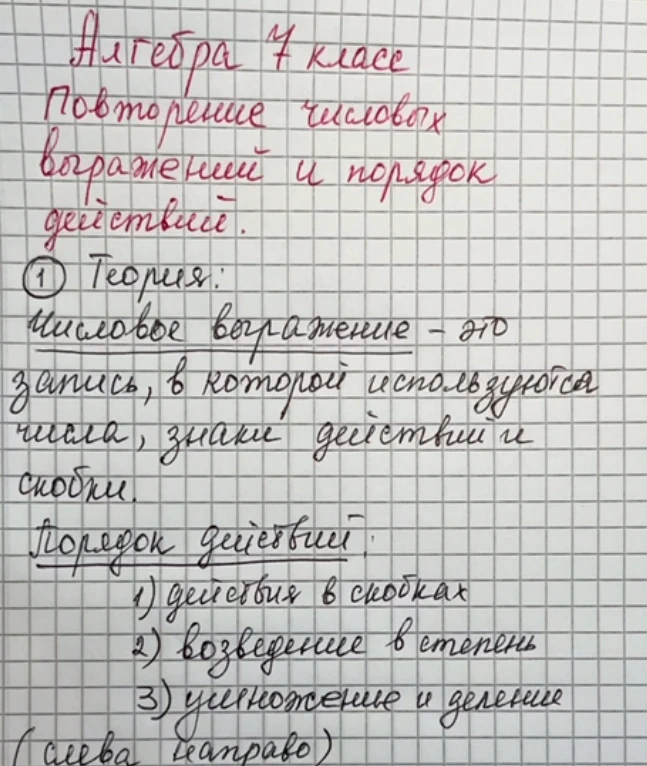 Алгебра 7 класс
Повторение числовых
выражений и порядок
действий.
1 Теория:
Числовое выражение - это
запись, в которой используются
числа, знаки действий и
скобки.
Порядок действий:
1) действия в скобках
2) возведение в степень
3) умножение и деление
(слева направо)